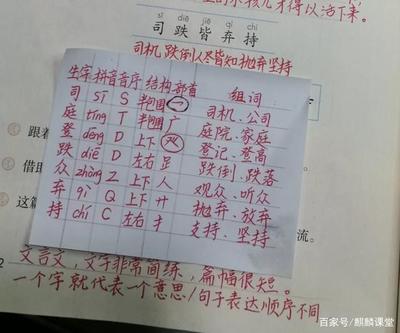 的小孩儿才得以活下来。
sī diē jiē qì chí
司跌皆弃持
司机 跌倒人尽皆知抛弃坚持
生字 拼音 音序 结构 部首 组词
司 sī S 半包围 一 司机、公司
庭 tíng T 半包围 广 庭院、家庭
登 dēng D 上下 癶 登记、登高
跌 diē D 左右 足 跌倒、跌落
众 zhòng Z 上下 人 观众、听众
弃 qì Q 上下 廾 抛弃、放弃
持 chí C 左右 扌 支持、坚持
跟着
借助
这篇
流。
文言文、文字非常简练，篇幅很短。
一个字就代表一个意思/句子表达顺序不同
百家号/麒麟课堂